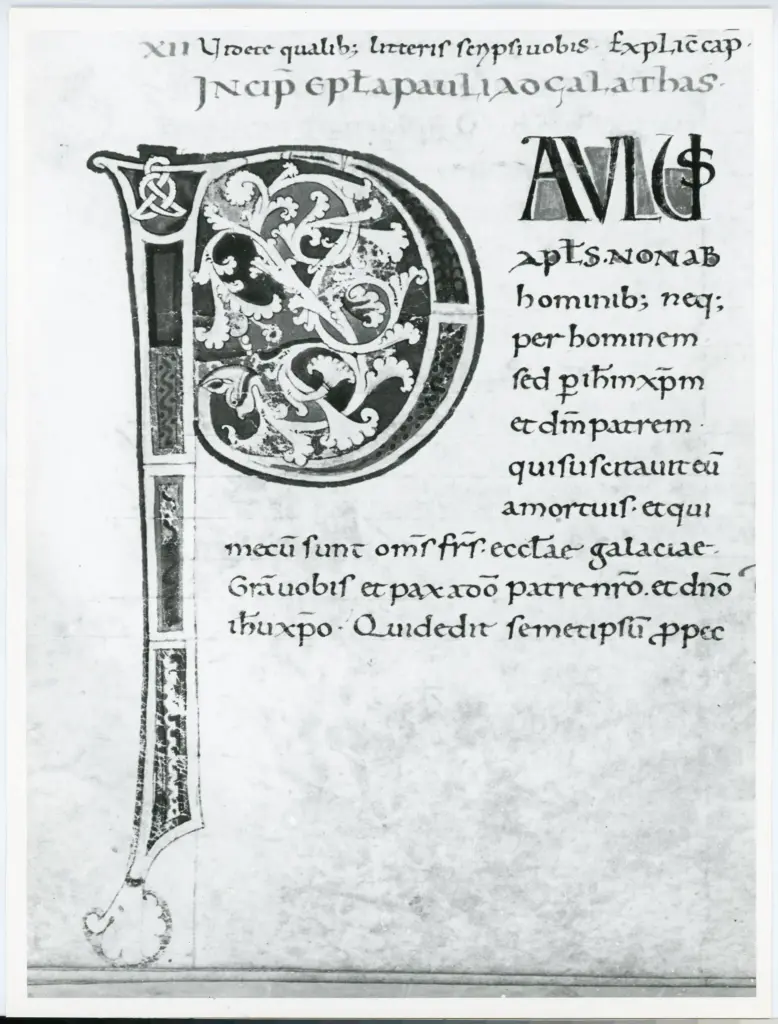 XII Videte qualib; litteris scripsi uobis. Explic̄ cap̄.
INCIP̄ EPŁA PAULI AD GALATHAS.
PAVLUS
APŁS. NON AB
hominib; neq;
per hominem
sed p̱ ih̄m xp̄m
et dm̄ patrem.
qui suscitauit eū
a mortuis. et qui
mecū sunt om̄s fr̄s. eccłae galaciae.
Gr̄a uobis et pax a dō patre nr̄o. et dnō
ih̄u xp̄o. Qui dedit semetipsū ꝓ pec